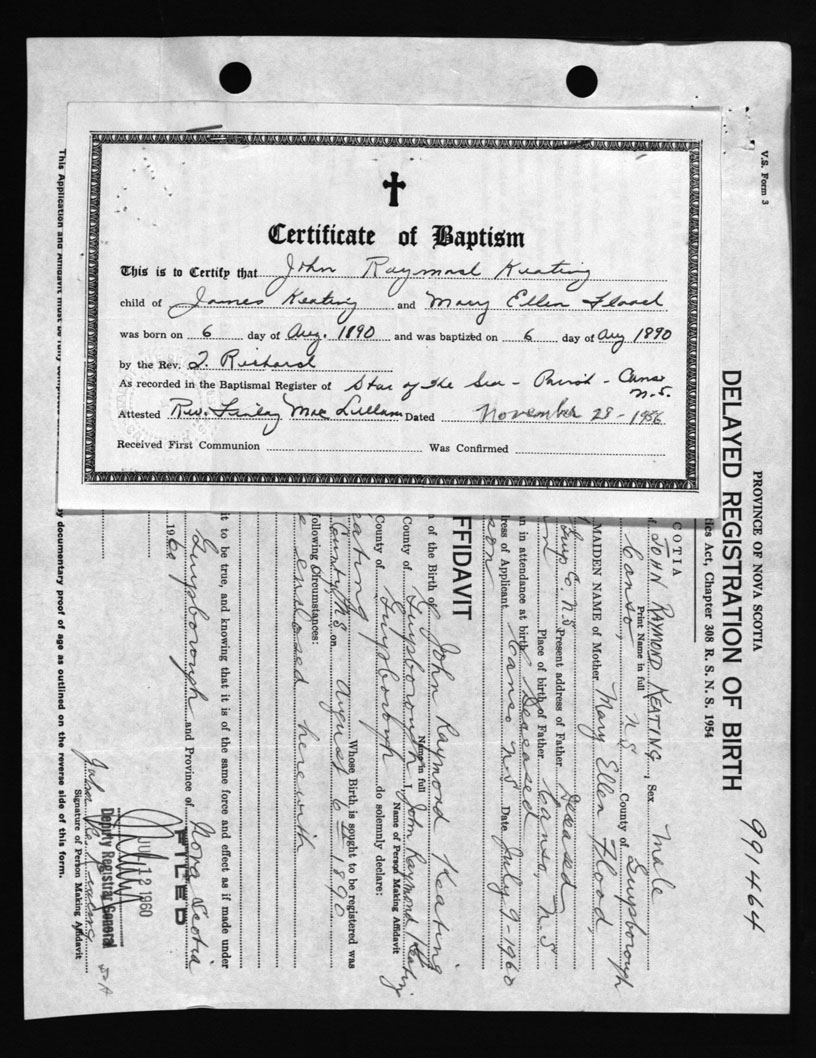 Certificate of Baptism
This is to Certify that John Raymond Keating
child of James Keating and Mary Ellen Flood
was born on 6 day of Aug. 1890 and was baptized on 6 day of Aug 1890
by the Rev. T. Richard
As recorded in the Baptismal Register of Star of the Sea - Parish - Canso
N.S.
Attested Rev. Finlay Mac Lellan Dated November 28 - 1956
Received First Communion Was Confirmed
V.S. Form 3
991464
PROVINCE OF NOVA SCOTIA
DELAYED REGISTRATION OF BIRTH
Act, Chapter 308 R. S. N. S. 1954
COTIA
JOHN RAYMOND KEATING, Sex Male
Print Name in full
Canso, N S County of Guysborough
MAIDEN NAME of Mother Mary Ellen Flood,
Guys Co. N.S. Present address of Father Deceased
Place of birth of Father Canso, N.S
in attendance at birth Deceased
ress of Applicant Canso N.S Date July 9 - 1960
FFIDAVIT
of the Birth of John Raymond Keating
Name in full
County of Guysborough I, John Raymond Keating
Name of Person Making Affidavit
County of Guysborough do solemnly declare:
eating Whose Birth is sought to be registered was
County, N.S. on August 6th 1890
following Circumstances:
enclosed herewith
it to be true, and knowing that it is of the same force and effect as if made under
Guysborough and Province of Nova Scotia
1960
FILED
JUL 12 1960
Deputy Registrar General
John R. Keating
Signature of Person Making Affidavit
This Application and Affidavit must be fully completed and
by documentary proof of age as outlined on the reverse side of this form.